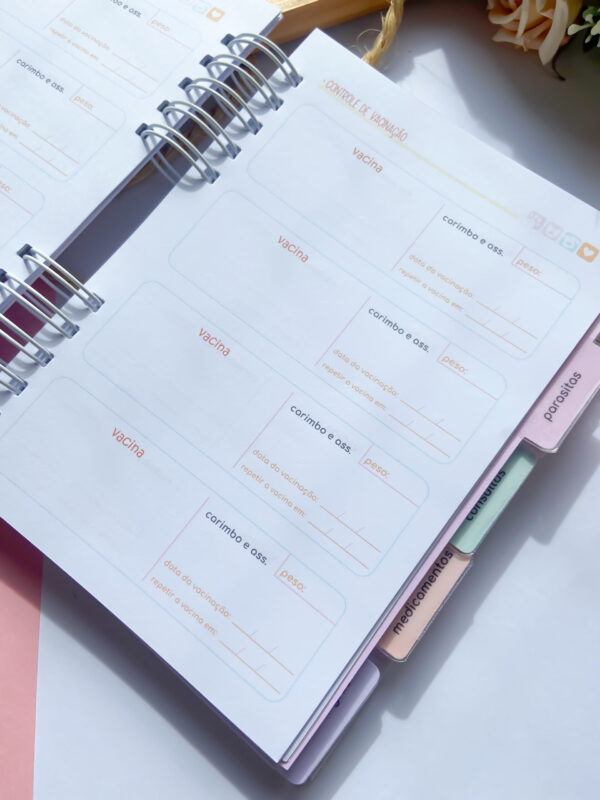 peso:
data da vacinação:
repetir a vacina em:
carimbo e ass.
peso:
vacina em:
peso:
• CONTROLE DE VACINAÇÃO
vacina
carimbo e ass.
peso:
data da vacinação: / /
repetir a vacina em: / /
vacina
carimbo e ass.
peso:
data da vacinação: / /
repetir a vacina em: / /
vacina
carimbo e ass.
peso:
data da vacinação: / /
repetir a vacina em: / /
vacina
carimbo e ass.
peso:
data da vacinação: / /
repetir a vacina em: / /
parasitas
consultas
medicamentos